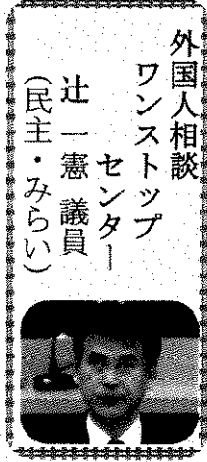 外国人相談
ワンストップ
センター
辻 一憲 議員
(民主・みらい)